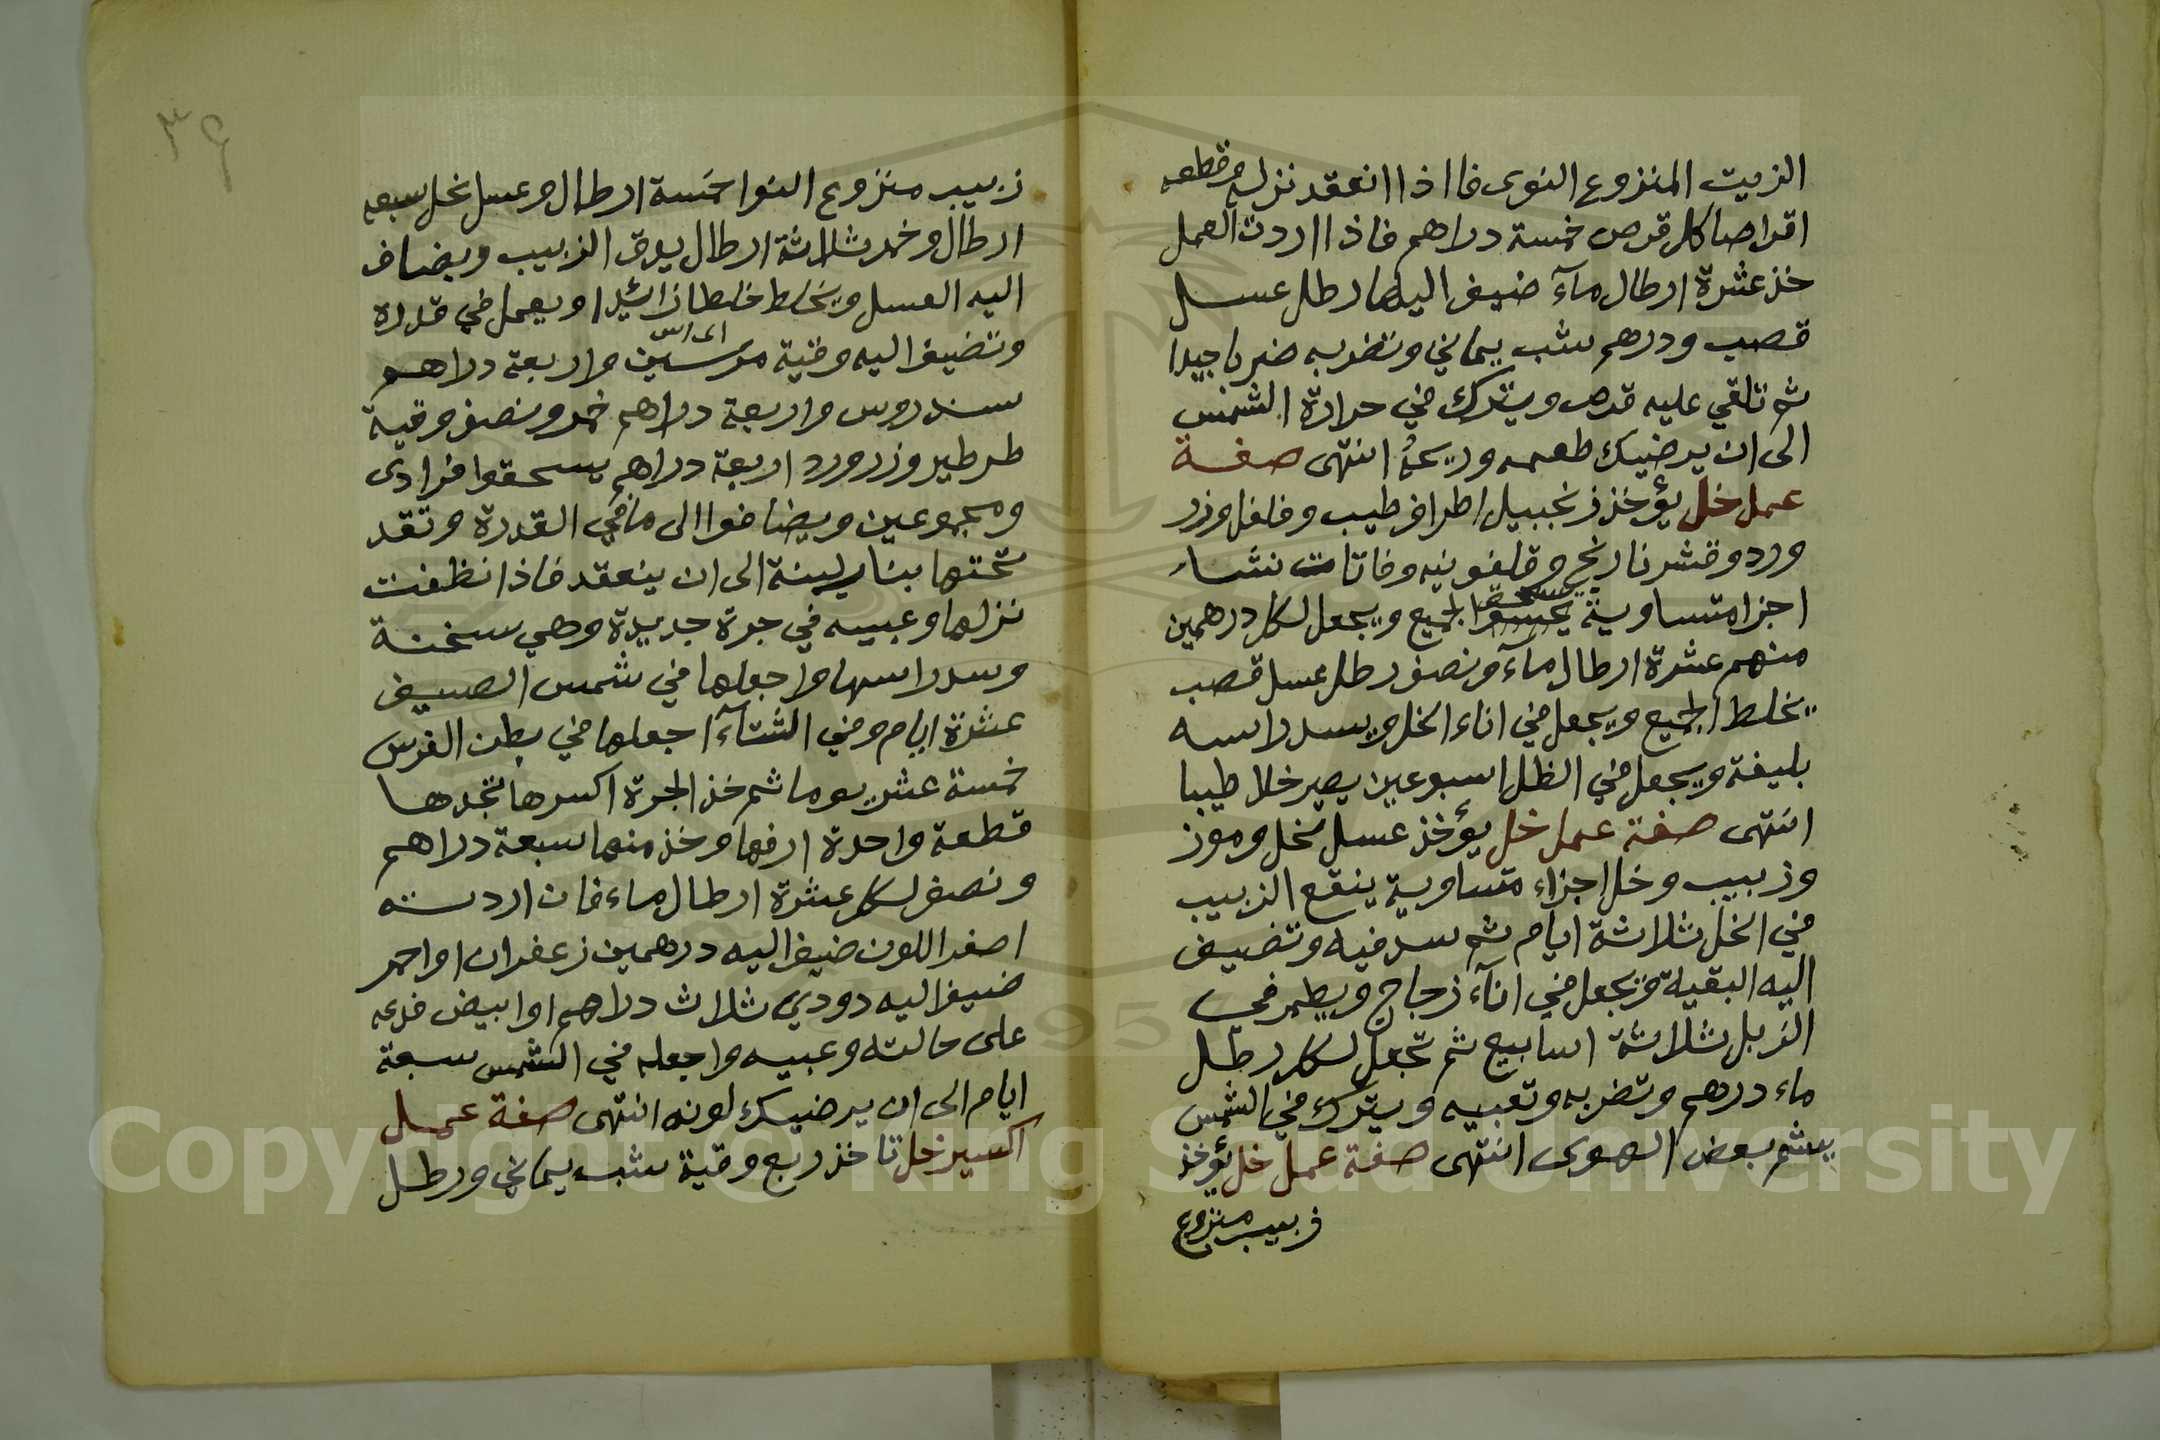 الزبيت المنزوع النوى فااذا انعقد نزله وقطعه
اقراصا كل قرص خمسة دراهم فاذا اردت العمل
خذ عشرة ارطال مآء ضيف اليها رطل عسل
قصب ودرهم شب يماني وتضربه ضربا جيدا
ثم تلقي عليه قرص ويترك في حرارة الشمس
الى ان يرضيك طعمه وريحه انتهى صفة
عمل خل يؤخذ زنجبيل اطراف طيب وفلفل وزر
ورد وقشر نارنج وقلفونيه وفاتات نشاء
اجزا متساوية يسحقوا الجميع ويجعل لكل درهمين
منهم عشرة ارطال مآء ونصف رطل عسل قصب
يخلط الجميع ويجعل في اناء الخل ويسد راسه
بليفة ويجعل في الظل اسبوعين يصير خلا طيبا
انتهى صفة عمل خل يؤخذ عسل نحل وموز
وزبيب وخل اجزاء متساوية ينقع الزبيب
في الخل ثلاثة ايام ثم سد فيه وتضيف
اليه البقية ويجعل في انآء زجاج ويطمر في
الزبل ثلاثة اسابيع ثم تجعل لكل رطل
ماء درهم وتضربه وتعبيه ويترك في الشمس
يشم بعض الهوى انتهى صفة عمل خل يؤخذ
زبيب منزوع
٣٤
زبيب منزوع النوا خمسة ارطال وعسل نحل سبعه
ارطال وخمر ثلاثة ارطال يدق الزبيب ويضاف
اليه العسل ويخلط خلطا زائيدا ويعمل في قدرة
وتضيف اليه وقية مرسين واربعة دراهم
اى اس
سندروس واربعة دراهم خمر ونصف وقية
طرطير وزر ورد اربعة دراهم يسحقوا فرادى
ومجموعين ويضافوا الى ما في القدرة وتقد
تحتها بنار لينة الى ان ينعقد فاذا نظفت
نزلها وعبيه في جرة جديدة وهي سخنة
وسد راسها واجعلها في شمس الصيف
عشرة ايام وفي الشتآء اجعلها في بطن الفرس
خمسة عشر يوما ثم خذ الجرة اكسرها تجدها
قطعة واحدة ارفها وخذ منها سبعة دراهم
ونصف لكل عشرة ارطال ماء فان اردته
اصفر اللون ضيف اليه درهمين زعفران او احمر
ضيف اليه دودي ثلاث دراهم او ابيض فدعه
على حالته وعبيه واجعله في الشمس سبعة
ايام الى ان يرضيك لونه انتهى صفة عمل
اكسير خل تاخذ ربع وقية شب يماني ورطل
Copyright © King Saud University